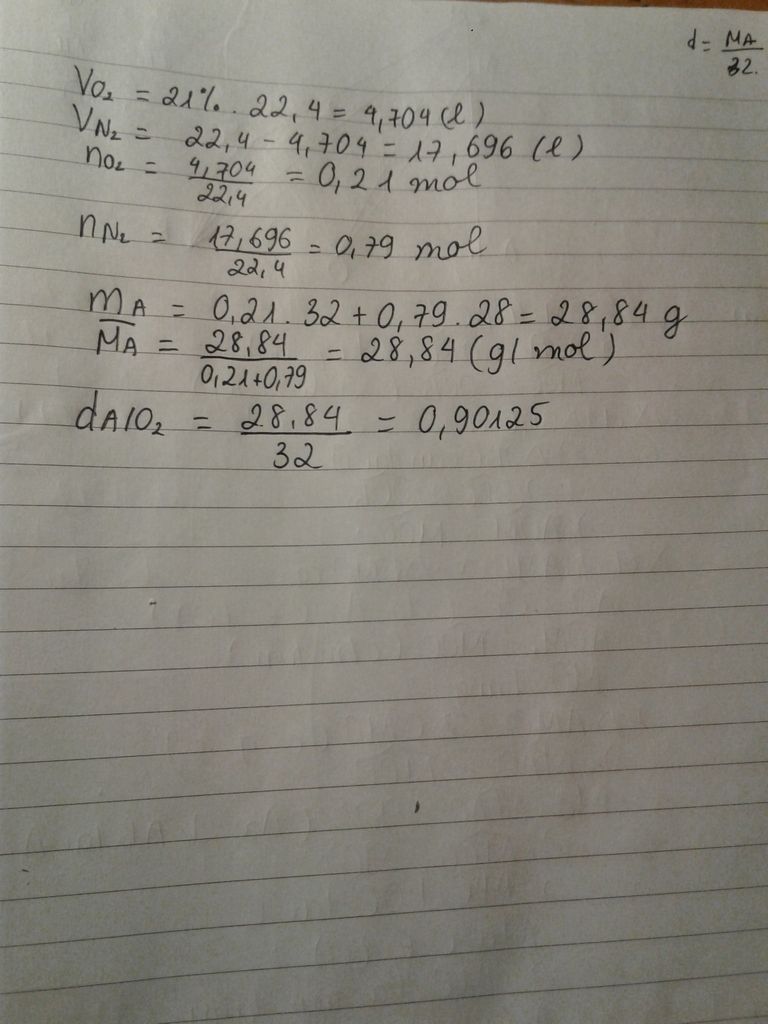 d = MA/32.
VO₂ = 21%. 22,4 = 4,704 (l)
VN₂ = 22,4 - 4,704 = 17,696 (l)
nO₂ = 4,704/22,4 = 0,21 mol
nN₂ = 17,696/22,4 = 0,79 mol
mA = 0,21. 32 + 0,79. 28 = 28,84 g
M̅A = 28,84/(0,21+0,79) = 28,84 (g/mol)
dA/O₂ = 28,84/32 = 0,90125